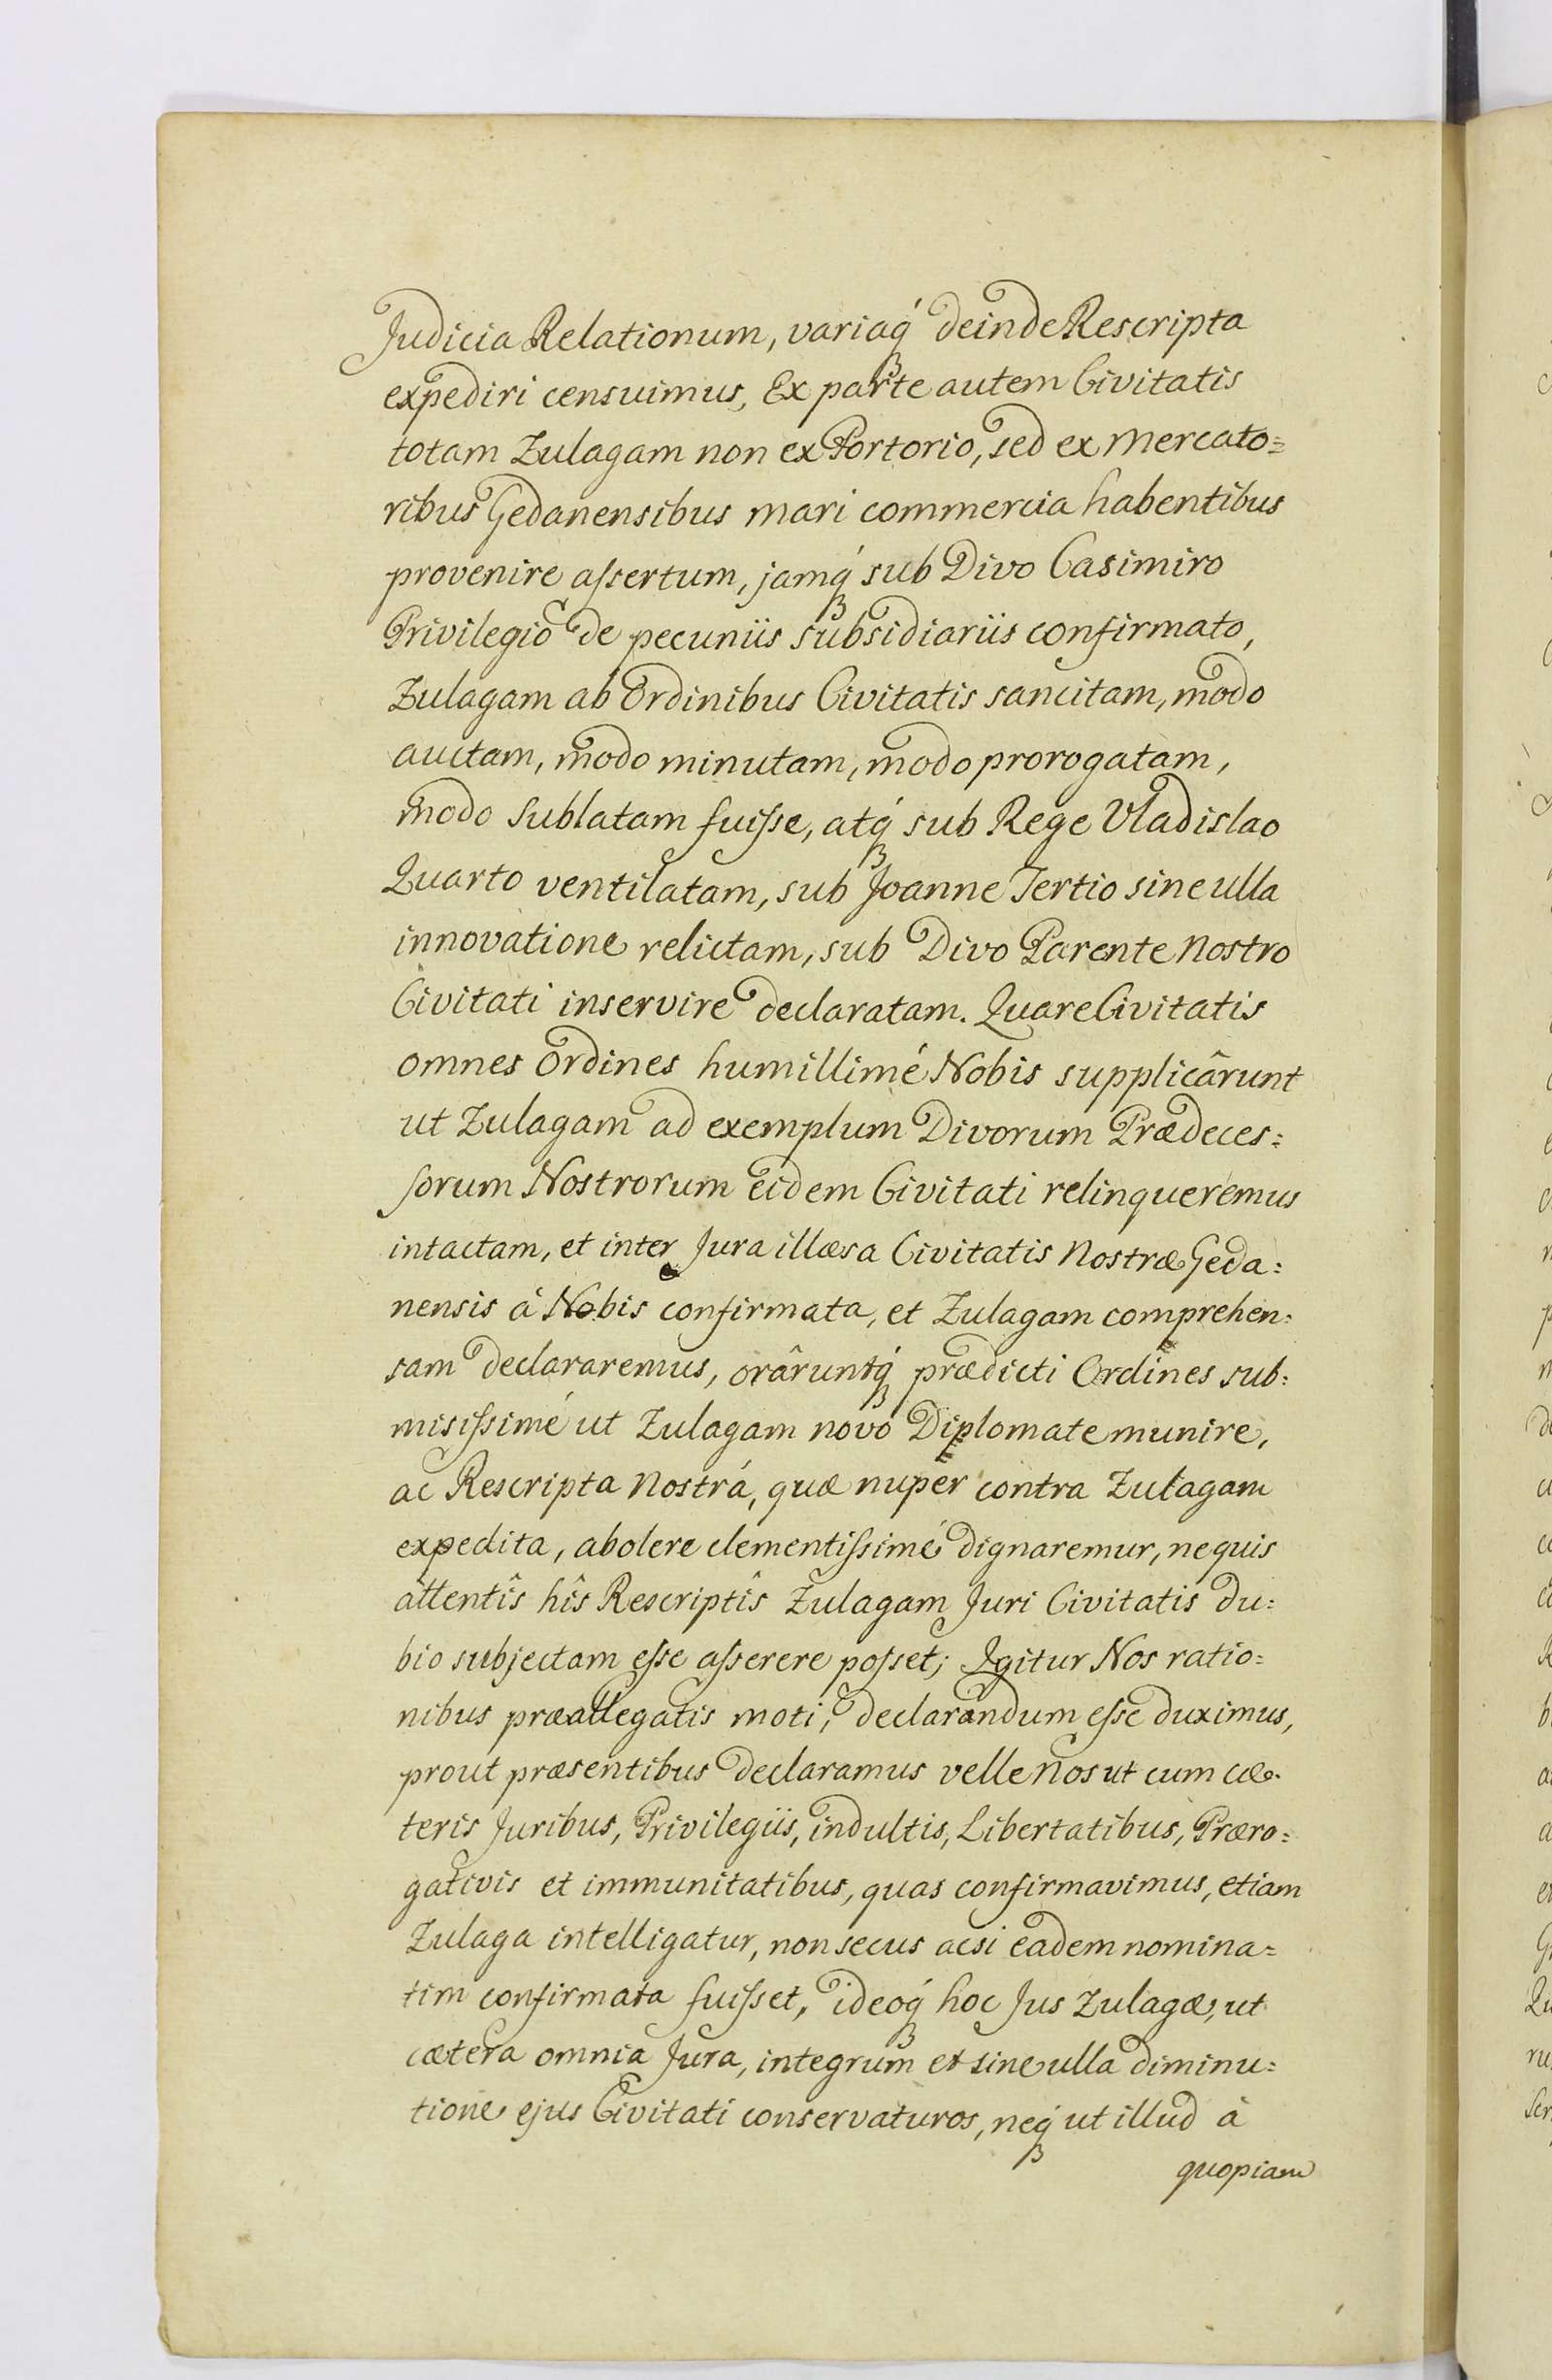 Judicia Relationum, variaq́ꝫ deinde Rescripta
expediri censuimus, Ex parte autem Civitatis
totam Zulagam non ex Portorio, sed ex mercato=
ribus Gedanensibus mari commercia habentibus
provenire aſsertum, jamq́ꝫ sub Divo Casimiro
Privilegio de pecuniis subsidiariis confirmato,
Zulagam ab Ordinibus Civitatis sancitam, modo
auctam, modo minutam, modo prorogatam,
modo sublatam fuiſse, atq́ꝫ sub Rege Vladislao
Quarto ventilatam, sub Joanne Tertio sine ulla
innovatione relictam, sub Divo Parente Nostro
Civitati inservire declaratam. Quare Civitatis
omnes Ordines humillimé Nobis supplicârunt
ut Zulagam ad exemplum Divorum Prædeces=
sorum Nostrorum eidem Civitati relinqueremus
intactam, et inter Jura illæsa Civitatis Nostræ Geda=
nensis à Nobis confirmata, et Zulagam comprehen=
sam declararemus, orâruntq́ꝫ prædicti Ordines sub=
misiſsimé ut Zulagam novo Diplomate munire,
ac Rescripta Nostra, quæ nuper contra Zulagam
expedita, abolere clementiſsimé dignaremur, ne quis
attentîs hîs Rescriptîs Zulagam Juri Civitatis du=
bio subjectam eſse aſserere poſset; Igitur Nos ratio=
nibus præallegatis moti, declarandum eſse duximus,
prout præsentibus declaramus velle Nos ut cum cæ=
teris Juribus, Privilegiis, indultis, Libertatibus, Præro=
gativis et immunitatibus, quas confirmavimus, etiam
Zulaga intelligatur, non secus acsi eadem nomina=
tim confirmata fuiſset, ideoq́ꝫ hoc Jus Zulagæ, ut
cætera omnia Jura, integrum et sine ulla diminu=
tione ejus Civitati conservaturos, neq́ꝫ ut illud à
quopiam